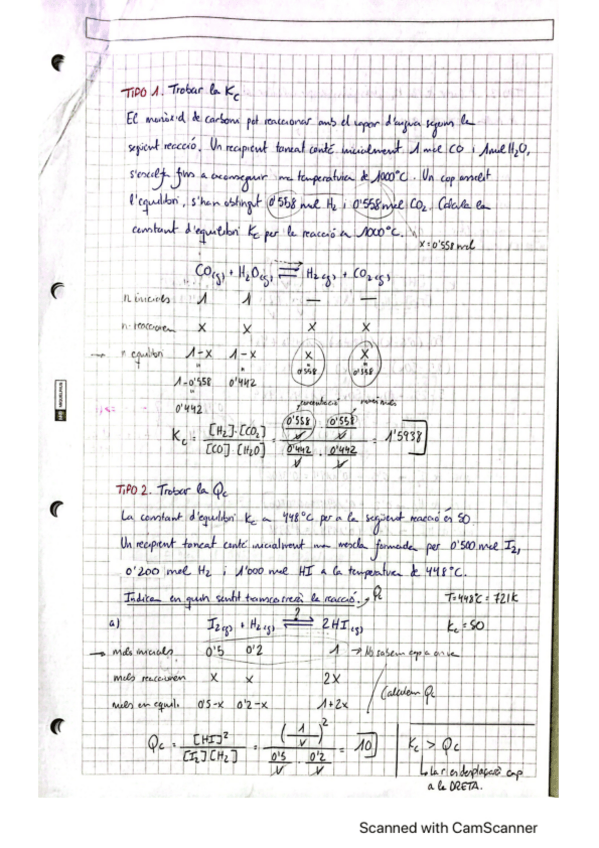 TIPO 1. Trobar la Kc
El monòxid de carboni pot reaccionar amb el vapor d'aigua segons la
següent reacció. Un recipient tancat conté inicialment 1 mol CO i 1 mol H₂O,
s'escalfa fins a aconseguir una temperatura de 1000°C. Un cop assolit
l'equilibri, s'han obtingut 0'558 mol H₂ i 0'558 mol CO₂. Calcula la
constant d'equilibri Kc per la reacció a 1000°C.
x = 0'558 mol
CO(g) + H₂O(g) ⇌ H₂(g) + CO₂(g)
n inicials 1 1 — —
n reaccionen x x x x
→ n equilibri 1-x 1-x x x
1-0'558 0'442 0'558 0'558
0'442
concentració
Kc = [H₂]·[CO₂] / [CO]·[H₂O] = (0'558/V · 0'558/V) / (0'442/V · 0'442/V) = 1'5938
TIPO 2. Trobar la Qc
La constant d'equilibri Kc a 448°C per a la següent reacció és 50
Un recipient tancat conté inicialment una mescla formada per 0'500 mol I₂,
0'200 mol H₂ i 1'000 mol HI a la temperatura de 448°C.
Indica en quin sentit transcorrerà la reacció. → Qc
T=448°C = 721K
a) I₂(g) + H₂(g) ⇌ 2HI(g)
?
Kc = 50
→ mols inicials 0'5 0'2 1 → No sabem cap a on va
mols reaccionen x x 2x
Calculem Qc
mols en equili. 0'5-x 0'2-x 1+2x
Qc = [HI]² / [I₂][H₂] = (1/V)² / (0'5/V · 0'2/V) = 10
Kc > Qc
cap
a la DRETA.
Scanned with CamScanner